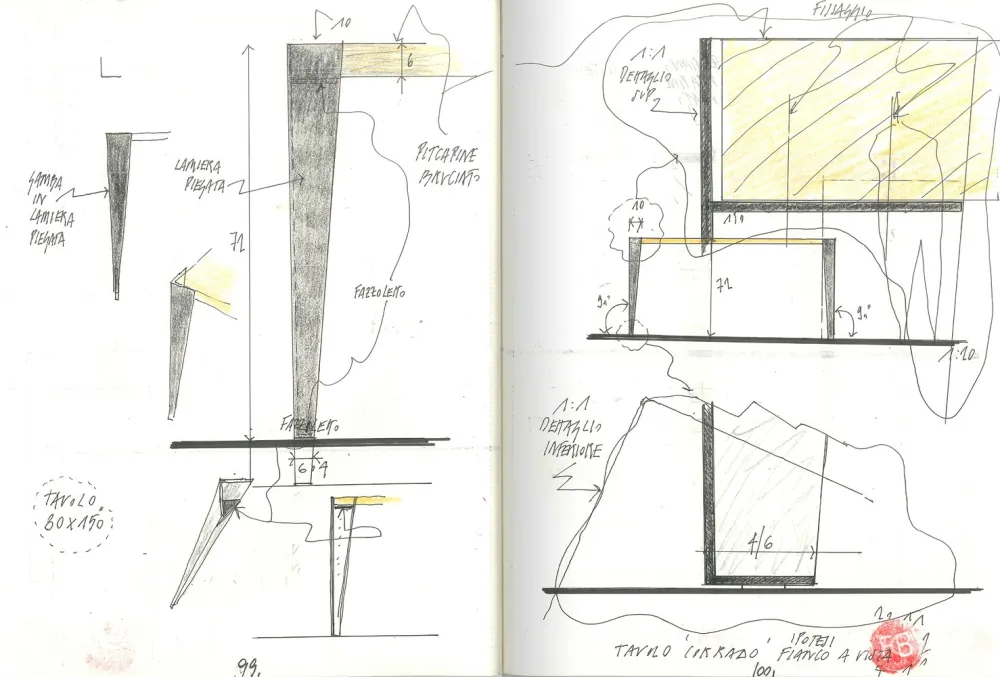 10
6
LAMIERA
PIEGATA
PITCHPINE
BRUCIATO
GAMBA
IN
LAMIERA
PIEGATA
72
FAZZOLETTO
FAZZOLETTO
6 4
TAVOLO
80X150
99.
FISSAGGIO
1:1
DETTAGLIO
SUP.
10
72
90°
90°
1:20
1:1
DETTAGLIO
INFERIORE
4/6
TAVOLO 'CORRADO' IPOTESI
FIANCO A VISTA
100.